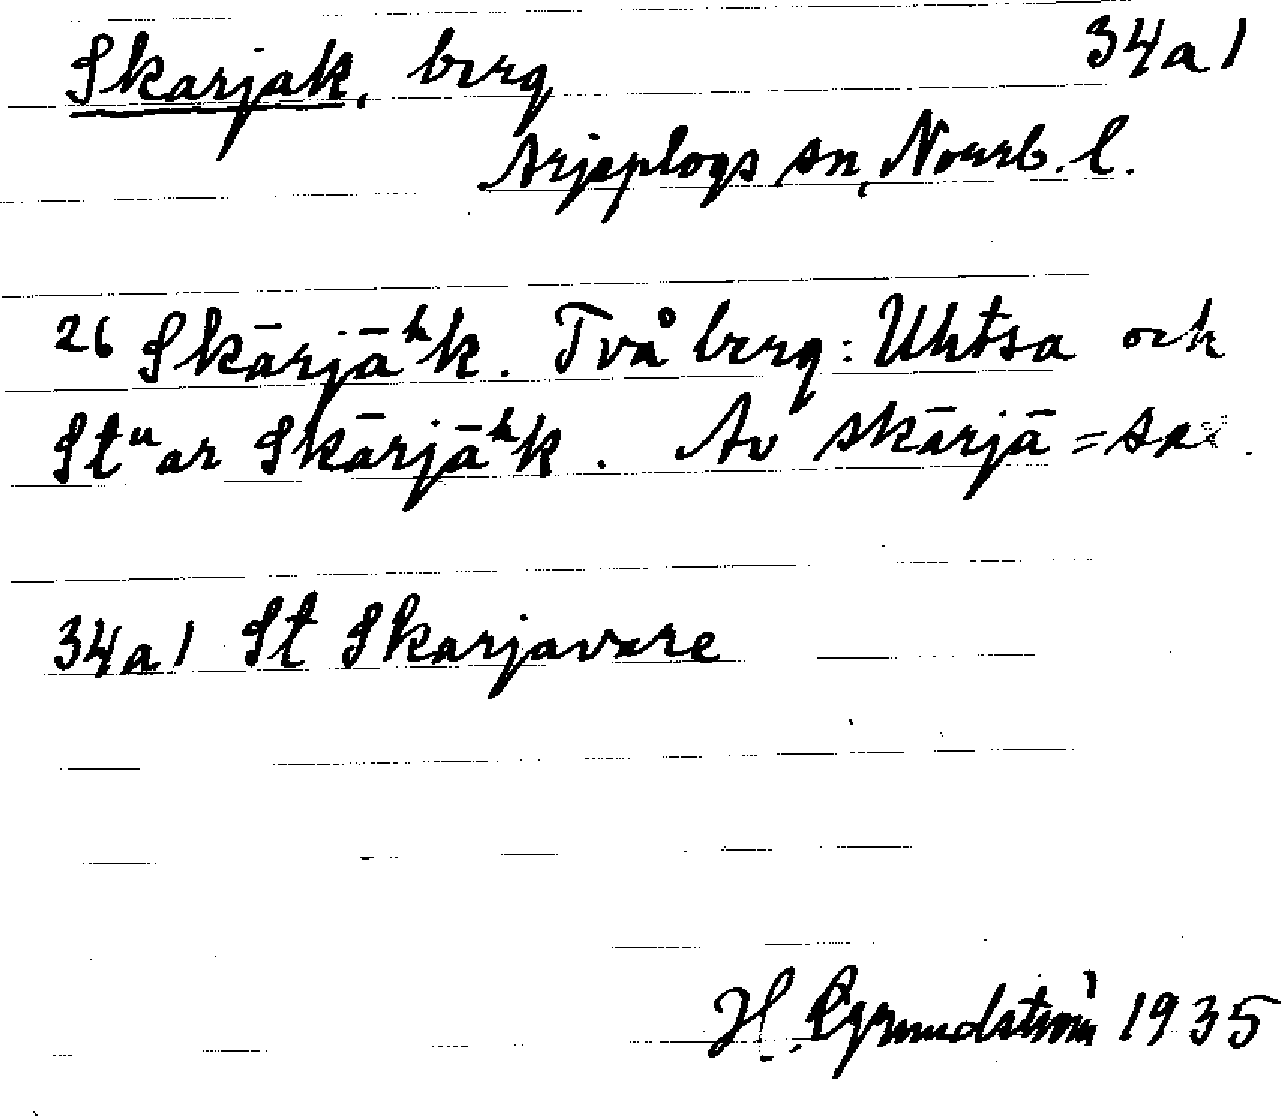 Skarjak, berg 34a1
Arjeplogs sn, Norrb. l.
26 Skārjāʰk. Två berg: Uhtsa och
Stᵘar Skārjāʰk. Av skārjā = sax.
34a1 St Skarjavare
H. Grundström 1935